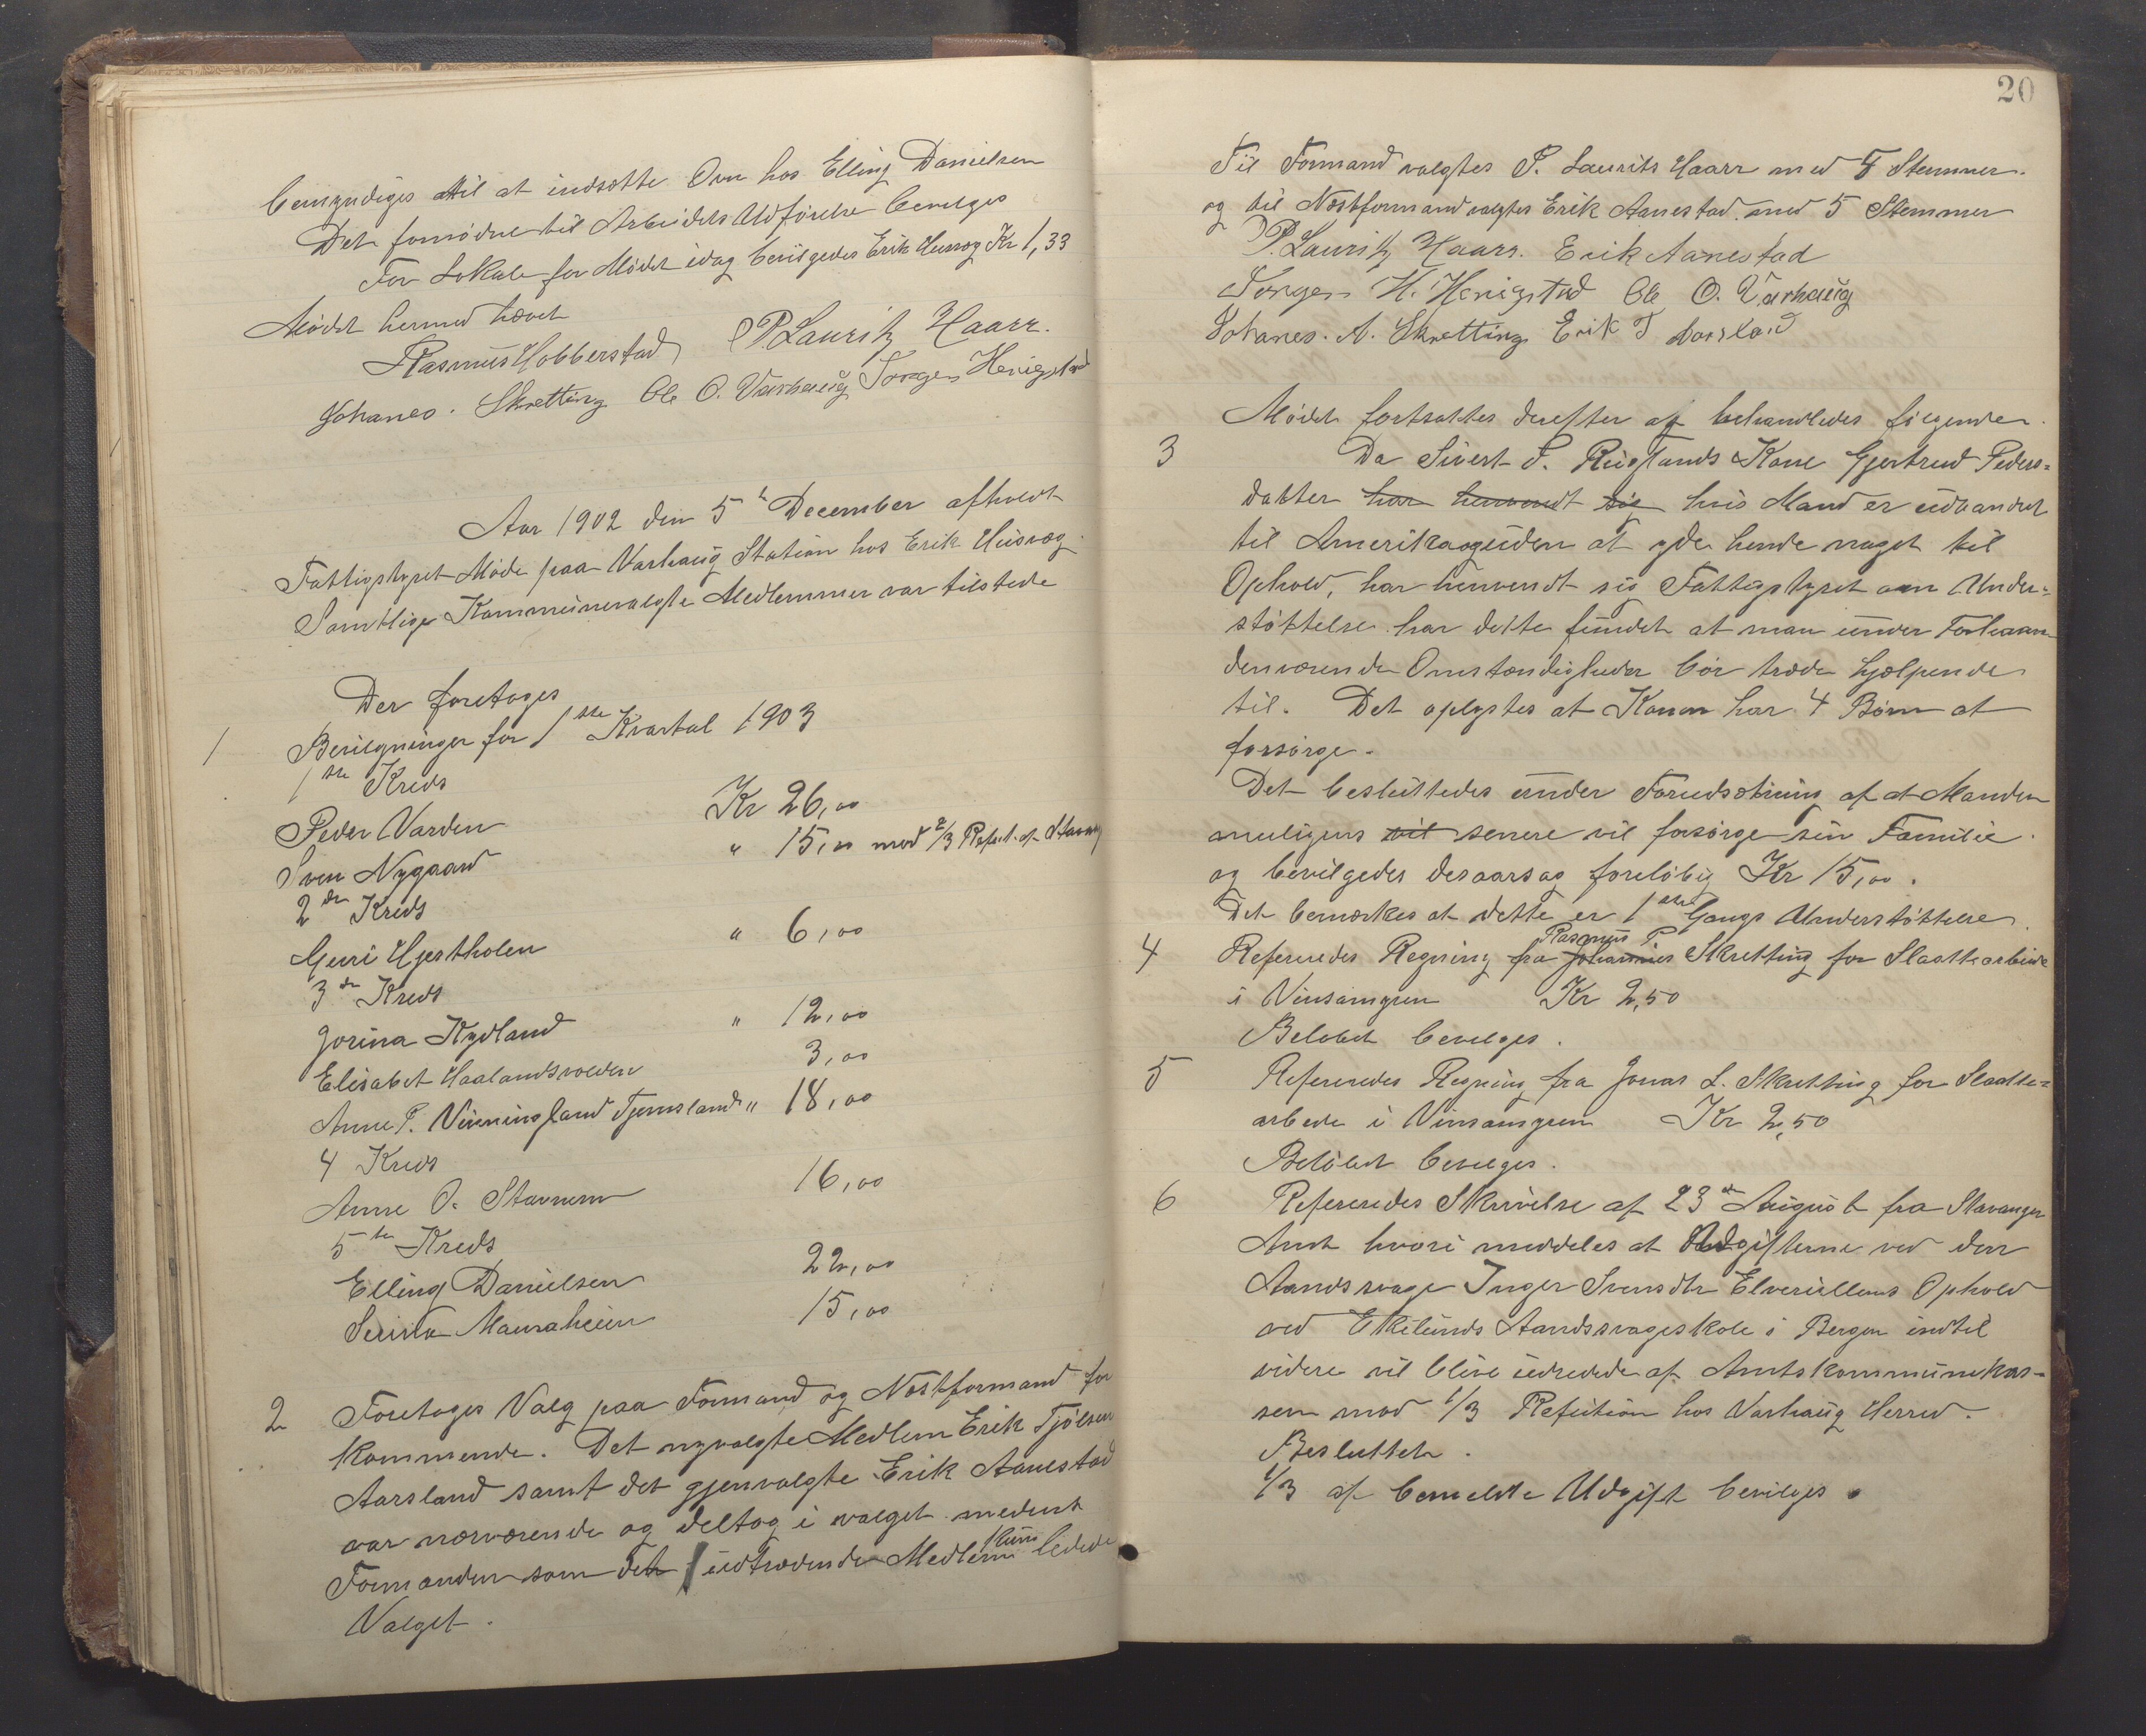 bemyndiges til at indsætte Ovn hos Elling Danielsen
Det fornødne til Arbeidets Udførelse bevilges
For Lokale for Mødet idag bevilgedes Erik Husvog Kr 1,33
Mødet hermed hævet
Rasmus Hobberstad P. Lauritz Haarr.
Johanes. Skretting Ole O. Varhaug Torger Henigstad
Aar 1902 den 5te December afholdt
Fattigstyret Møde paa Varhaug Station hos Erik Husvog.
Samtlige Kommunevalgte Medlemmer var tilstede
Der foretoges
1 Bevilgninger for 1ste Kvartal 1903
1ste Kreds
Peder Varden Kr 26,00
Sven Nygaard " 15,00 mod 2/3 Refut. af Stavang
2den Kreds
Guri Hjertholen " 6,00
3de Kreds
Jorina Kydland " 12,00
Elisabet Haalandsvolden 3,00
Anne P. Vinningland Tjemsland " 18,00
4 Kreds
Anne O. Stavnem 16,00
5te Kreds
Elling Danielsen 22,00
Serina Mauraheien 15,00
2 Foretoges Valg paa Formand og Næstformand for
kommende. Det nyvalgte Medlem Erik Tjølsen
Aarsland samt det gjenvalgte Erik Aanestad
var nærværende og deltog i valget medens
Formanden som det udtrædende Medlem kun ledede
Valget.
20
Til Formand valgtes P. Laurits Haarr med 4 Stemmer.
og til Næstformand valgtes Erik Aanestad med 5 Stemmer
P. Lauritz Haarr. Erik Aanestad
Torger H. Henigstad Ole O. Varhaug
Johanes. A. Skretting Erik T Aarsland
Mødet fortsattes derefter og behandledes følgende.
3 Da Sivert S. Ruglands Kone Gjertrud Peders=
datter har henvendt sig hvis Mand er udvandret
til Amerika uden at yde hende noget til
Ophold, har henvendt sig Fattigstyret om Under=
støttelse har dette fundet at man under Forhaan
denværende Omstændigheder bør træde hjælpende
til. Det oplystes at Konen har 4 Børn at
forsørge.
Det besluttedes under Forudsætning af at Manden
muligens vil senere vil forsørge sin Familie.
og bevilgedes desaarsag foreløbig Kr 15,00.
Det bemærkes at dette er 1ste Gangs Understøttelse.
4 Refereredes Regning fra Johannes Rasmus P Skretting for Slaattearbeide
i Vinsamyren Kr 2,50
Beløbet bevilges.
5 Refereredes Regning fra Jonas L. Skretting for Slaatte=
arbeide i Vinsamyren Kr 2,50
Beløbet bevilges.
6 Refereredes Skrivelse af 23de August fra Stavanger
Amt hvori meddeles at Udgifterne ved den
Aandssvage Inger Svensdtr Elveviellens Ophold
ved Ekelunds Aandssvageskole i Bergen indtil
videre vil blive udredede af Amtskommunekas-
sen mod 1/3 Refution hos Varhaug Herred.
Besluttet.
1/3 af bemeldte Udgift bevilges.